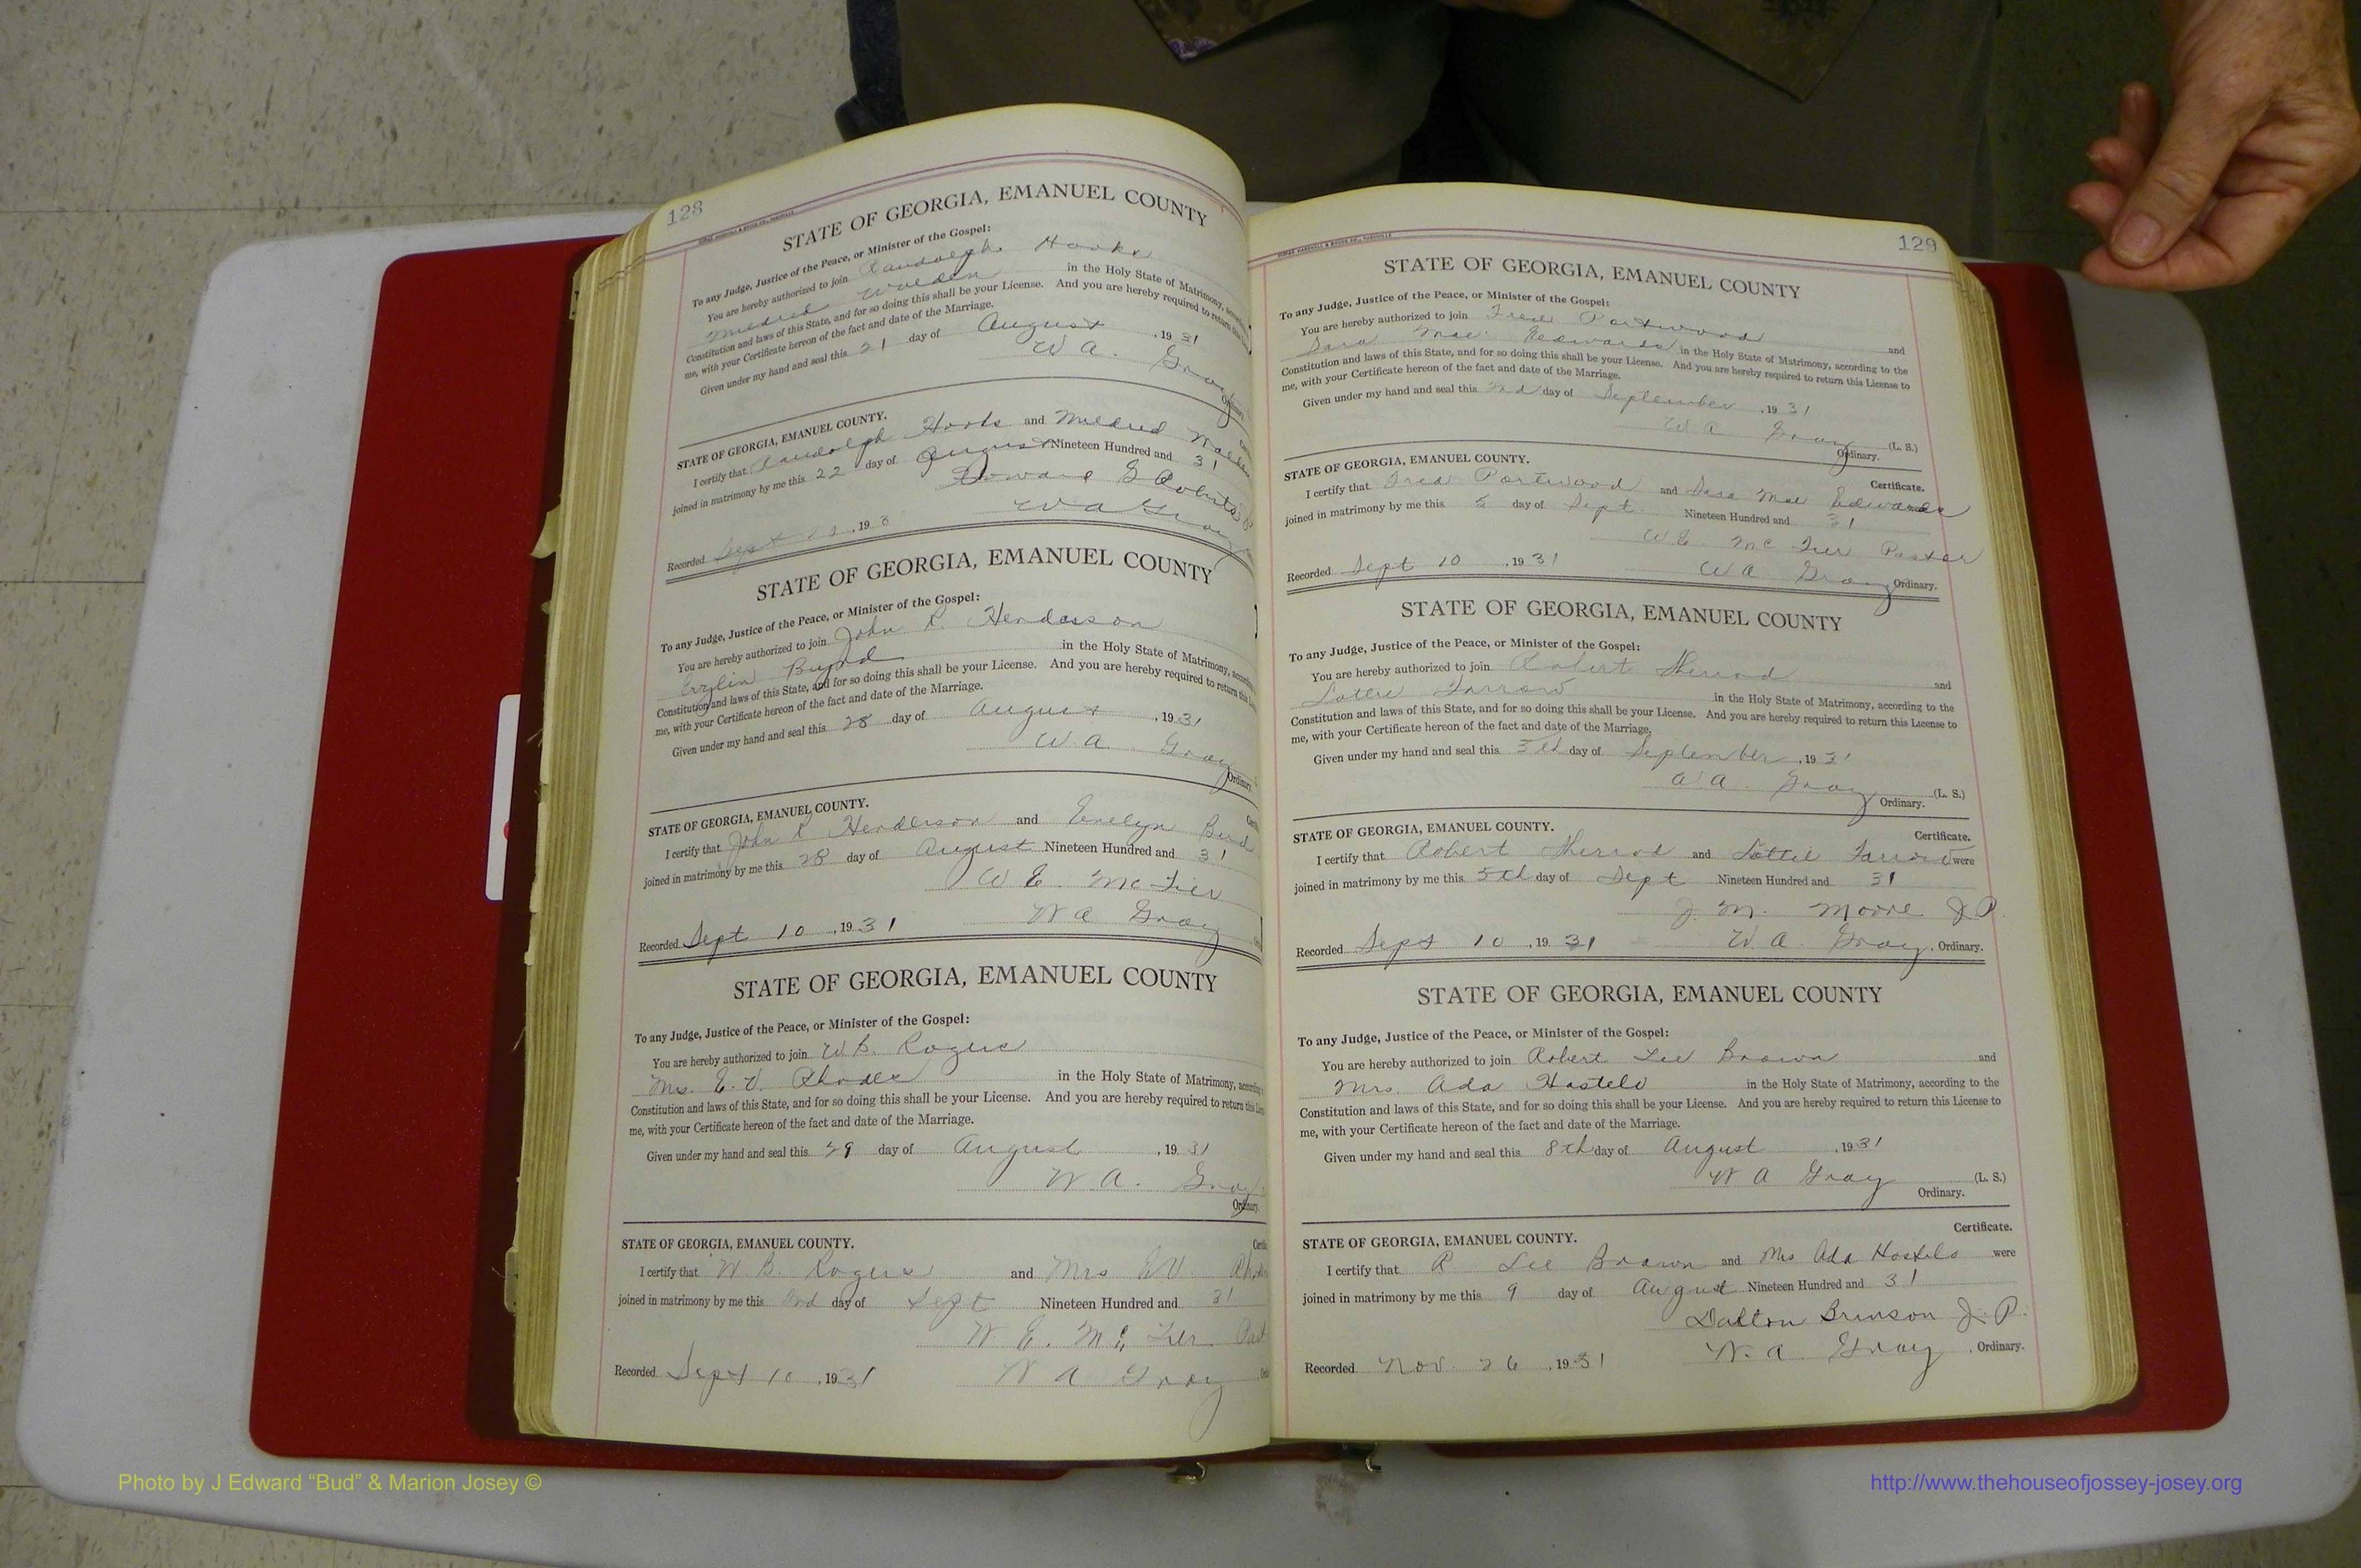 128
STATE OF GEORGIA, EMANUEL COUNTY
To any Judge, Justice of the Peace, or Minister of the Gospel:
You are hereby authorized to join Randolph Hooks
Mildred Walden in the Holy State of Matrimony,
Constitution and laws of this State, and for so doing this shall be your License. And you are hereby required to return
me, with your Certificate hereon of the fact and date of the Marriage.
Given under my hand and seal this 21 day of August, 1931
W A. Gray
Ordinary.
STATE OF GEORGIA, EMANUEL COUNTY.
I certify that Randolph Hooks and Mildred
joined in matrimony by me this 22 day of August Nineteen Hundred and 31
Howard G Roberts
Recorded Sept , 193
W A Gray
STATE OF GEORGIA, EMANUEL COUNTY
To any Judge, Justice of the Peace, or Minister of the Gospel:
You are hereby authorized to join John R. Henderson
Byrd in the Holy State of Matrimony,
Constitution and laws of this State, and for so doing this shall be your License. And you are hereby required to return this
me, with your Certificate hereon of the fact and date of the Marriage.
Given under my hand and seal this 28 day of August, 1931
W. A Gray
Ordinary.
STATE OF GEORGIA, EMANUEL COUNTY.
I certify that John R Henderson and Evelyn
joined in matrimony by me this 28 day of August Nineteen Hundred and 31
W E. McTier
Recorded Sept 10, 1931 W A Gray
STATE OF GEORGIA, EMANUEL COUNTY
To any Judge, Justice of the Peace, or Minister of the Gospel:
You are hereby authorized to join W. B. Rogers
Mrs. E. V. Rhodes in the Holy State of Matrimony,
Constitution and laws of this State, and for so doing this shall be your License. And you are hereby required to return this
me, with your Certificate hereon of the fact and date of the Marriage.
Given under my hand and seal this 29 day of August, 1931
W. A. Gray
Ordinary.
STATE OF GEORGIA, EMANUEL COUNTY.
I certify that W. B. Rogers and Mrs E V.
joined in matrimony by me this day of Sept Nineteen Hundred and 31
W. E. Mc Tier
Recorded Sept 10, 1931 W A Gray
129
STATE OF GEORGIA, EMANUEL COUNTY
To any Judge, Justice of the Peace, or Minister of the Gospel:
You are hereby authorized to join Fred Portwood and
Sara Mae Edwards in the Holy State of Matrimony, according to the
Constitution and laws of this State, and for so doing this shall be your License. And you are hereby required to return this License to
me, with your Certificate hereon of the fact and date of the Marriage.
Given under my hand and seal this 2nd day of September, 1931
W A Gray (L. S.)
Ordinary.
STATE OF GEORGIA, EMANUEL COUNTY. Certificate.
I certify that Fred Portwood and Sara Mae Edwards
joined in matrimony by me this 5 day of Sept. Nineteen Hundred and 31
W E. McTier Pastor
Recorded Sept 10, 1931 W A Gray Ordinary.
STATE OF GEORGIA, EMANUEL COUNTY
To any Judge, Justice of the Peace, or Minister of the Gospel:
You are hereby authorized to join Robert Sherrod and
Lottie Farrow in the Holy State of Matrimony, according to the
Constitution and laws of this State, and for so doing this shall be your License. And you are hereby required to return this License to
me, with your Certificate hereon of the fact and date of the Marriage.
Given under my hand and seal this 5th day of September, 1931
W. A. Gray (L. S.)
Ordinary.
STATE OF GEORGIA, EMANUEL COUNTY. Certificate.
I certify that Robert Sherrod and Lottie Farrow were
joined in matrimony by me this 5th day of Sept Nineteen Hundred and 31
J. M. Moore J P.
Recorded Sept 10, 1931 W. A. Gray, Ordinary.
STATE OF GEORGIA, EMANUEL COUNTY
To any Judge, Justice of the Peace, or Minister of the Gospel:
You are hereby authorized to join Robert Lee Brown and
Mrs. Ada Hastelo in the Holy State of Matrimony, according to the
Constitution and laws of this State, and for so doing this shall be your License. And you are hereby required to return this License to
me, with your Certificate hereon of the fact and date of the Marriage.
Given under my hand and seal this 8th day of August, 1931
W A Gray (L. S.)
Ordinary.
STATE OF GEORGIA, EMANUEL COUNTY. Certificate.
I certify that R Lee Brown and Mrs Ada Hostelo were
joined in matrimony by me this 9 day of August Nineteen Hundred and 31
Dalton Brinson J. P.
Recorded Nov. 26, 1931 W. A Gray, Ordinary.
Photo by J Edward “Bud” & Marion Josey ©
http://www.thehouseofjossey-josey.org